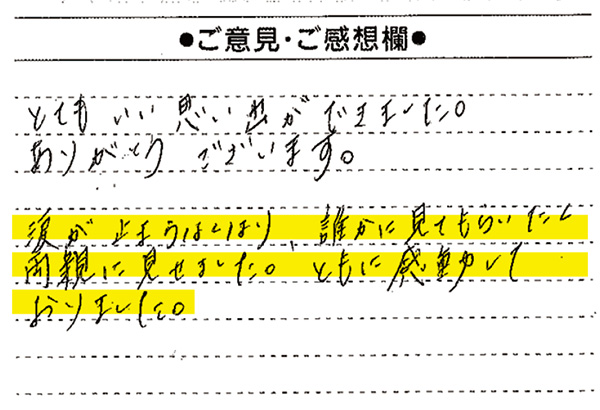 ●ご意見・ご感想欄●
とてもいい思い出ができました。
ありがとうございます。
涙が止まらなくなり、誰かに見てもらいたく
両親に見せました。ともに感動して
おりました。